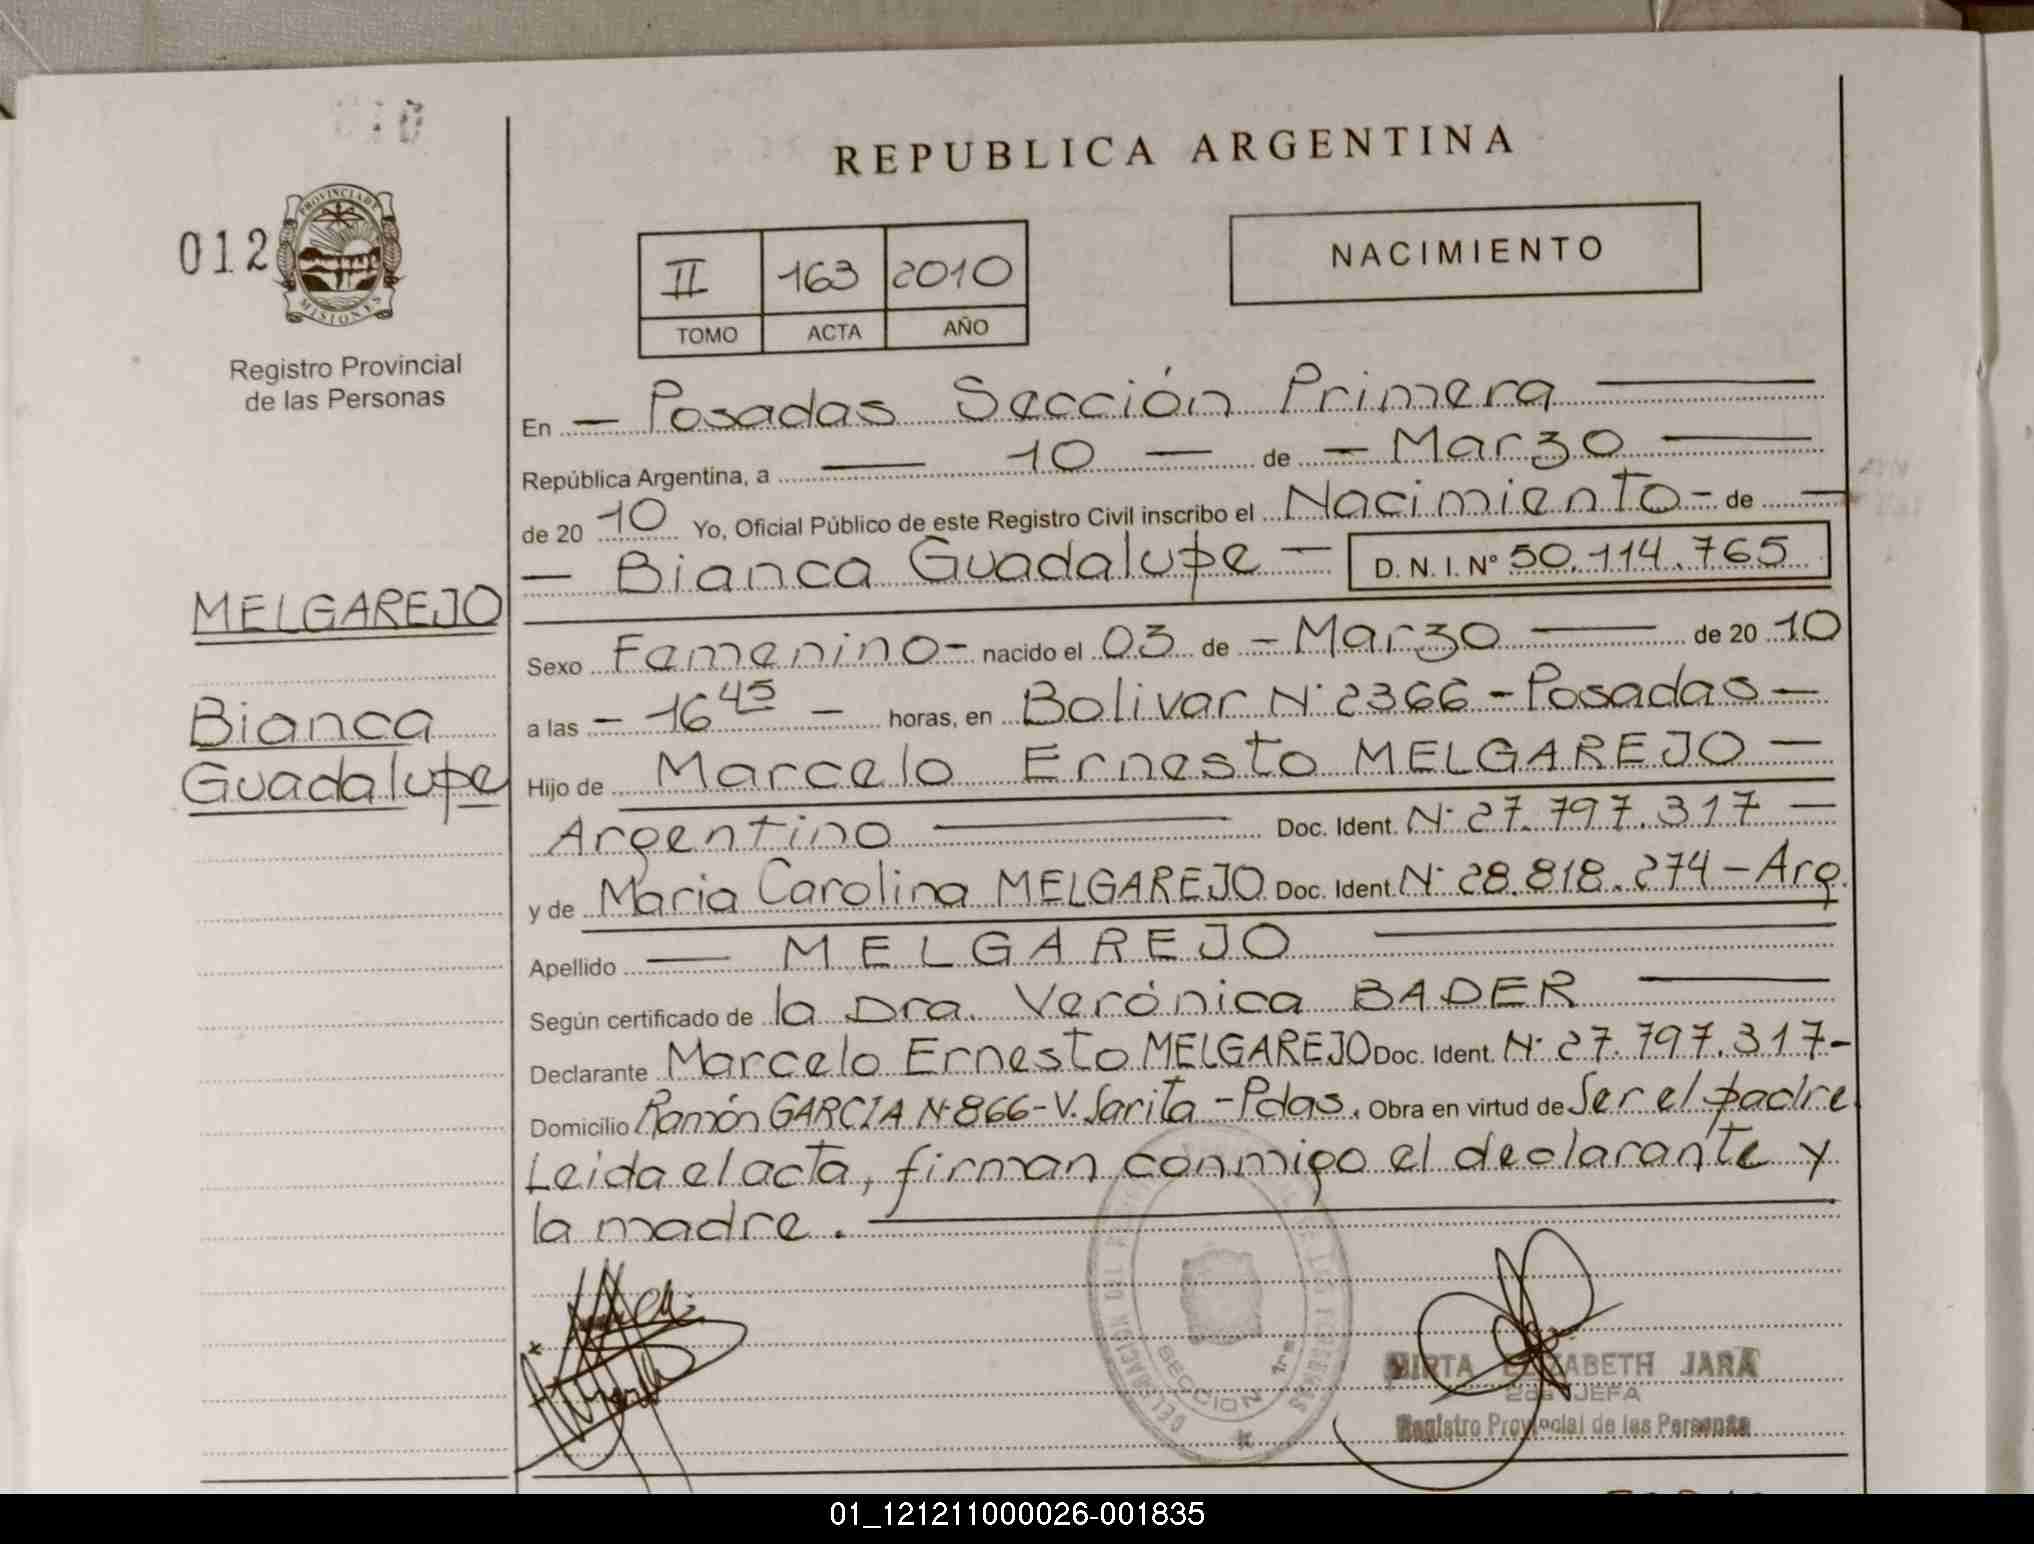 REPUBLICA ARGENTINA
012
PROVINCIA DE
MISIONES
Registro Provincial
de las Personas
II 163 2010
TOMO ACTA AÑO
NACIMIENTO
En - Posadas Sección Primera
República Argentina, a 10 de - Marzo
de 20 10 Yo, Oficial Público de este Registro Civil inscribo el Nacimiento - de
- Bianca Guadalupe - D. N. I. N° 50.114.765
MELGAREJO
Bianca
Guadalupe
Sexo Femenino - nacido el 03 de - Marzo de 20 10
a las - 16 45 - horas, en Bolivar N° 2366 - Posadas -
Hijo de Marcelo Ernesto MELGAREJO -
Argentino Doc. Ident. N° 27.797.317 -
y de Maria Carolina MELGAREJO Doc. Ident. N° 28.818.274 - Arg.
Apellido MELGAREJO
Según certificado de la Dra. Verónica BADER
Declarante Marcelo Ernesto MELGAREJO Doc. Ident. N° 27.797.317 -
Domicilio Ramón GARCIA N° 866 - V. Sarita - Pdas. Obra en virtud de Ser el padre.
Leida el acta, firman conmigo el declarante y
la madre.
SECCION 1ra
MIRTA ELIZABETH JARA
2da JEFA
Registro Provincial de las Personas
01_121211000026-001835